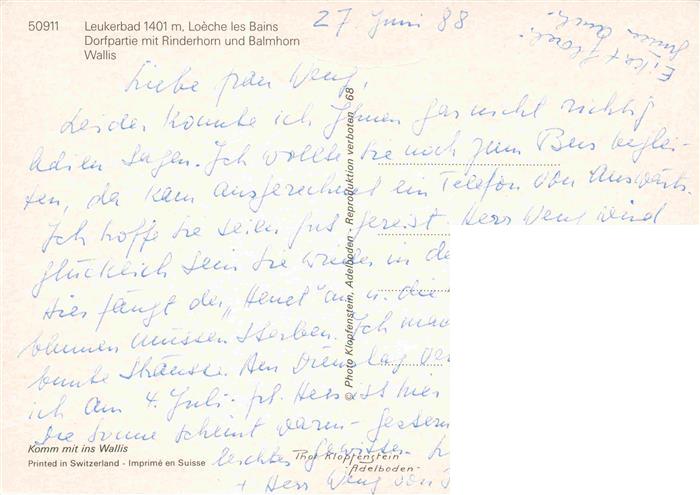 50911 Leukerbad 1401 m, Loèche les Bains
Dorfpartie mit Rinderhorn und Balmhorn
Wallis
27. Juni 88
Liebe Frau Weng,
Leider konnte ich Ihnen gar nicht richtig
Adieu sagen. Ich wollte Sie noch zum Bus beglei-
ten, da kam ausgerechnet ein Telefon von Auswärts.
Ich hoffe Sie seien gut gereist. Herr Weng wird
glücklich sein Sie wieder in
Hier fängt der „Heuet" an u. die
blumen müssen sterben. Ich
bunte Sträusse. Den Dienstag
ich am 4. Juli. Hier ist
Die Sonne scheint warm - gestern
leichtes Gewitter.
+ Herr Weng von
© Photo Klopfenstein, Adelboden - Reproduktion verboten 68
Komm mit ins Wallis
Printed in Switzerland - Imprimé en Suisse
Phot Klopfenstein
-Adelboden-